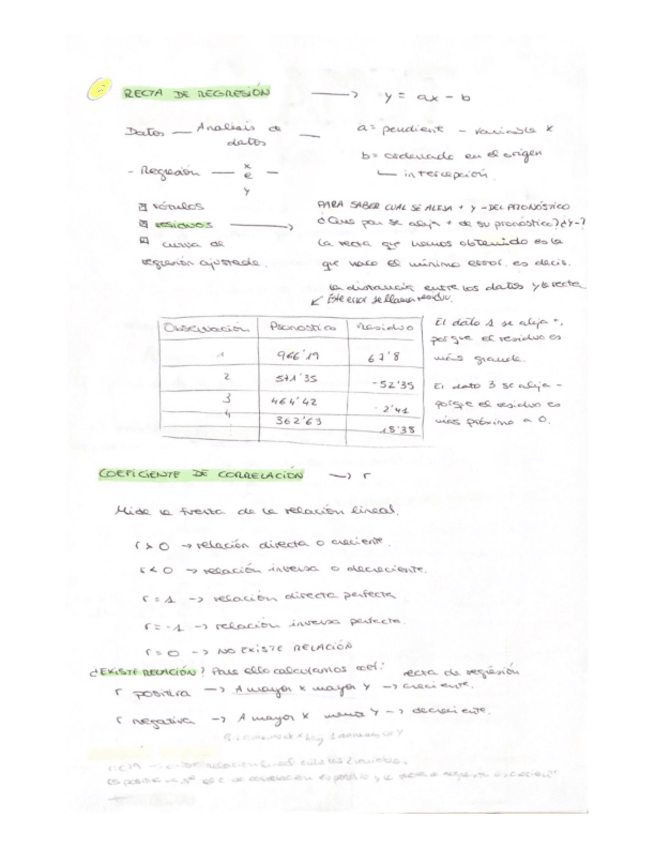 RECTA DE REGRESIÓN → y = ax - b
Datos — Analisis de datos —
a = pendiente - variable x
b = ordenada en el origen
intercepción.
- Regresión — x e y —
rótulos
residuos →
curva de
regresión ajustada.
PARA SABER CUAL SE ALEJA + y - DEL PRONÓSTICO
¿Que par se aleja + de su pronóstico? ¿Y -?
La recta que hemos obtenido es la
que hace el mínimo error. es decir.
la distancia entre los datos y la recta
Este error se llama residuo.
Observación Pronostico Residuo
1 966'19 67'8
2 571'35 -52'35
3 464'42 -2'41
4 362'63 -13'38
El dato 1 se aleja +,
porque el residuo es
más grande.
El dato 3 se aleja -
porque el residuo es
más próximo a 0.
COEFICIENTE DE CORRELACIÓN → r
Mide la fuerza de la relación lineal.
r > 0 → relación directa o creciente.
r < 0 → relación inversa o decreciente.
r = 1 → relación directa perfecta
r = -1 → relación inversa perfecta.
r = 0 → NO EXISTE RELACIÓN
¿EXISTE RELACIÓN? Para ello calculamos coef: recta de regresión
r positiva → A mayor x mayor y → creciente.
r negativa → A mayor x menor y → decreciente.